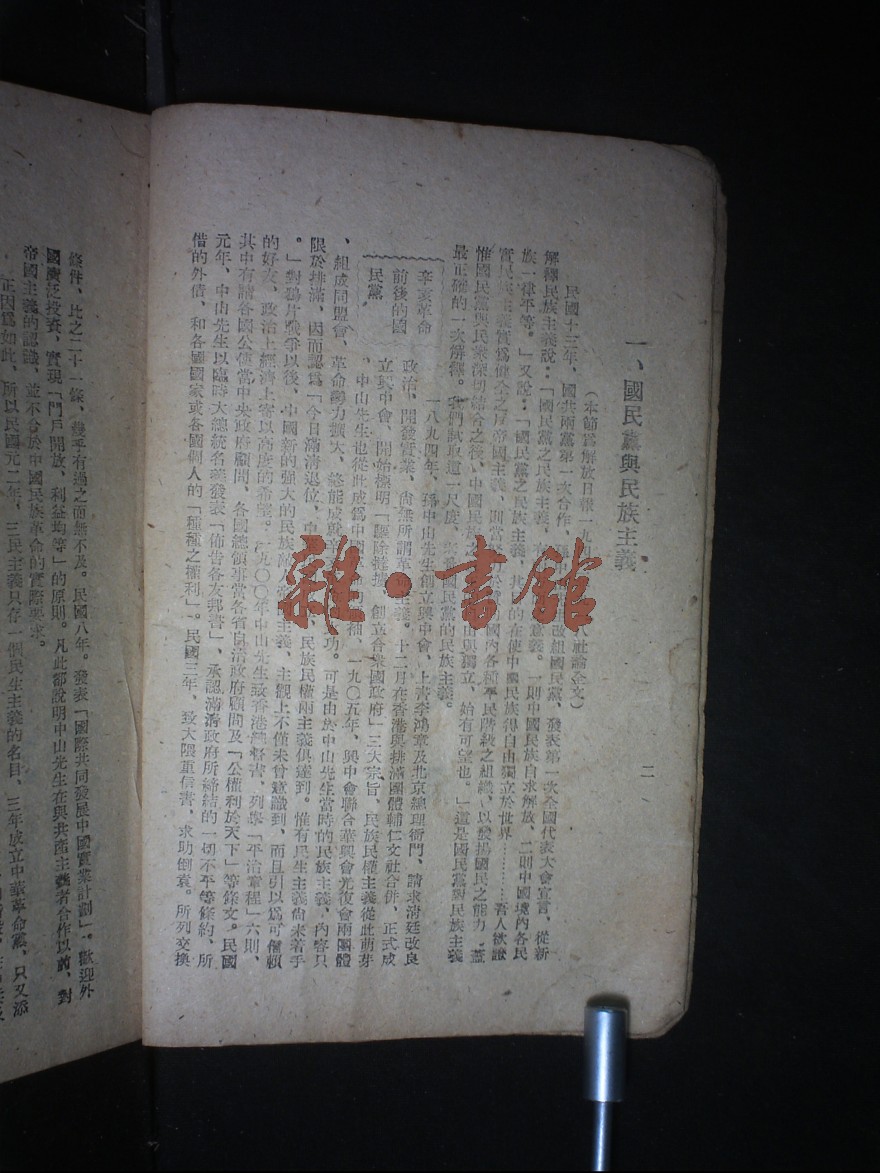 一、國民黨與民族主義
二
（本節爲解放日報一九 八社論全文）
民國十三年，國共兩黨第一次合作， 改組國民黨，發表第一次全國代表大會宣言，從新
解釋民族主義說：「國民黨之民族主義，有 意義。一則中國民族自求解放，二則中國境內各民
族一律平等。」又說：「國民黨之民族主義，其 的在使中國民族得自由獨立於世界…………吾人欲證
實民族主義實爲健全之反帝國主義，則當 國內各種平民階級之組織，以發揚國民之能力，蓋
惟國民黨與民衆深切結合之後，中國民族 由與獨立，始有可望也。」這是國民黨對民族主義
最正確的一次解釋。我們試取這一尺度， 國民黨的民族主義。
辛亥革命
前後的國
民黨
一八九四年，孫中山先生創立興中會，上書李鴻章及北京總理衙門，請求清廷改良
政治，開發實業，尙無所謂革命主義。十二月在香港與排滿團體輔仁文社合併，正式成
立興中會，開始標明「驅除韃虜， 創立合衆國政府」三大宗旨，民族民權主義從此萌芽
，中山先生也從此成爲中國 袖，一九〇五年，興中會聯合華興會光復會兩團體
、組成同盟會，革命勢力擴大，終能成就 功。可是由於中山先生當時的民族主義，內容只
限於排滿，因而認爲「今日滿清退位，中 民族民權兩主義俱達到。惟有民生主義尙未着手
。」對鴉片戰爭以後，中國新的强大的民族 主義，主觀上不僅未曾意識到，而且引以爲可信賴
的好友，政治上經濟上寄以高度的希望。一九〇〇年中山先生致香港總督書，列擧「平治章程」六則，
其中有請各國公使當中央政府顧問，各國總領事當各省自治政府顧問及「公權利於天下」等條文。民國
元年，中山先生以臨時大總統名義發表「佈告各友邦書」，承認滿淸政府所締結的一切不平等條約，所
借的外債，和各國國家或各國個人的「種種之權利」。民國三年，致大隈重信書，求助倒袁。所列交換
條件，比之二十一條，幾乎有過之而無不及。民國八年。發表「國際共同發展中國實業計劃」。歡迎外
國廣泛投資，實現「門戶開放，利益均等」的原則。凡此都說明中山先生在與共產主義者合作以前，對
帝國主義的認識，並不合於中國民族革命的實際要求。
正因爲如此，所以民國元二年，三民主義只存一個民生主義的名目，三年成立中華革命黨，只又添
雜·書館